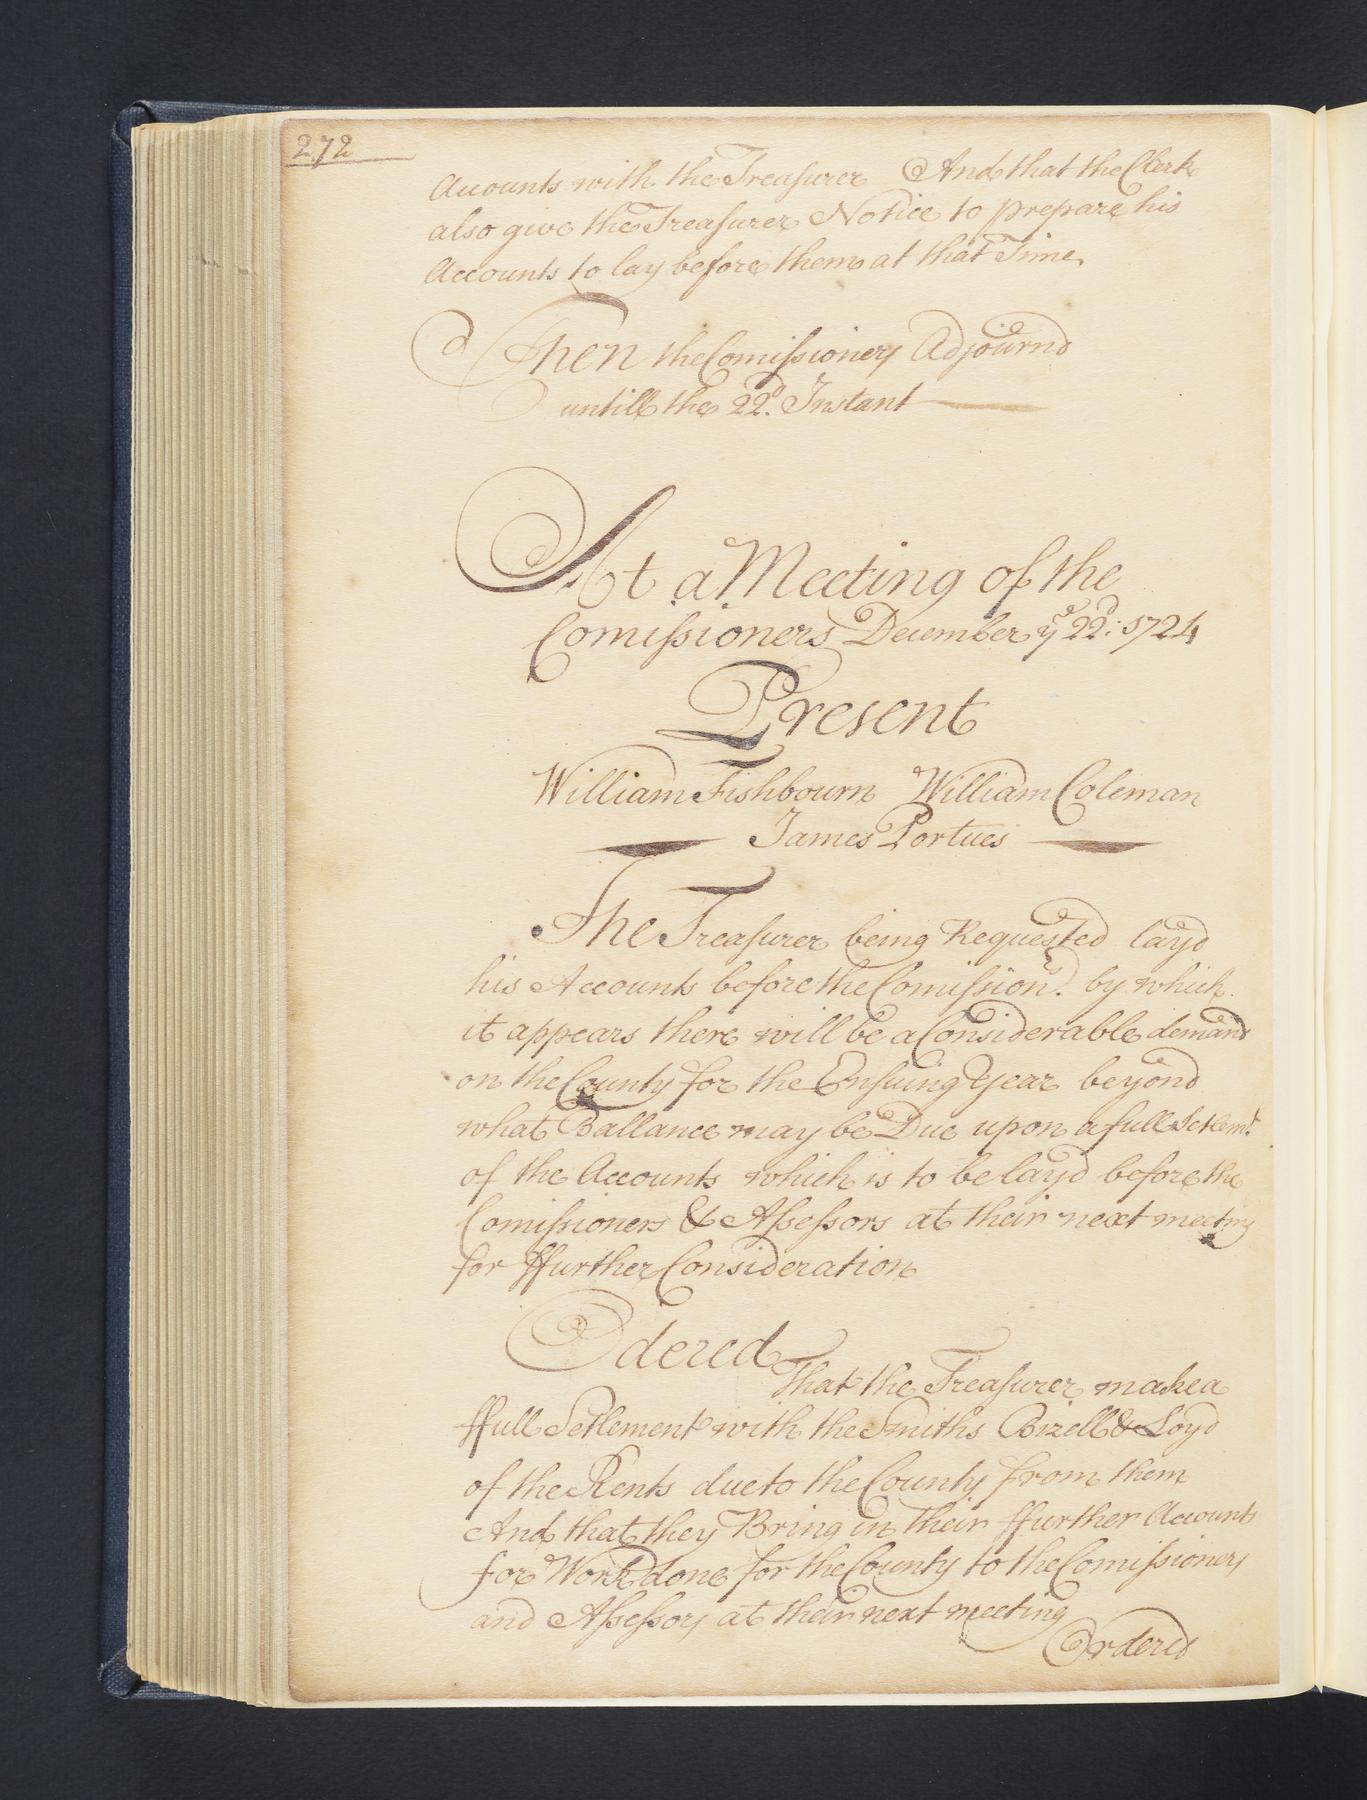 272
Accounts with the Treasurer And that the Clerk
also give the Treasurer Notice to prepare his
Accounts to lay before them at that Time,
Then the Comissioners Adjournd
untill the 22d. Instant
At a Meeting of the
Comissioners December ye 22d: 1724
Present
William Fishbourn William Coleman
James Portues
The Treasurer being Requested layd
his Accounts before the Comissionrs. by which
it appears there will be a Considerable demand
on the County for the Ensuing Year beyond
what Ballance may be Due upon a full Setlemt.
of the Accounts which is to be layd before the
Comissioners & Assessors at their next meeting
for ffurther Consideration
Odered
That the Treasurer make a
ffull Setlement with the Smiths Bizell & Loyd
of the Rents due to the County from them
And that they Bring in their ffurther Accounts
for Work done for the County to the Comissioners
and Assessors at their next meeting
Ordered